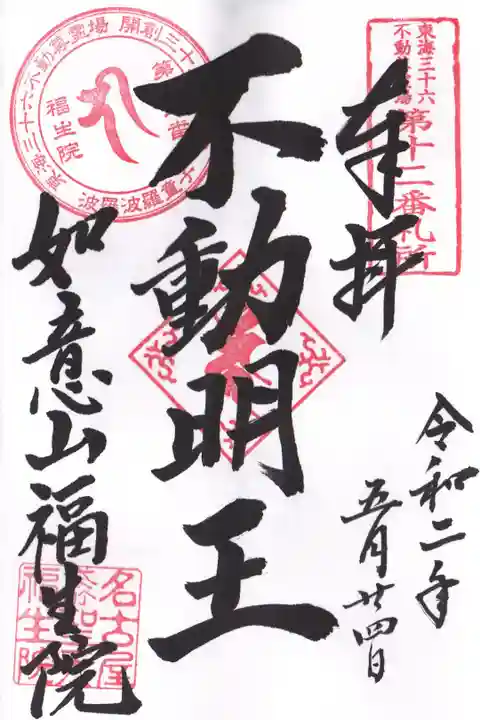 奉拝
東海三十六
不動尊霊場
第十二番札所
令和二年
五月廿四日
不動明王
如意山福生院
東海三十六不動尊霊場 開創三十
福生院
波羅波羅童子
名古屋
福生院